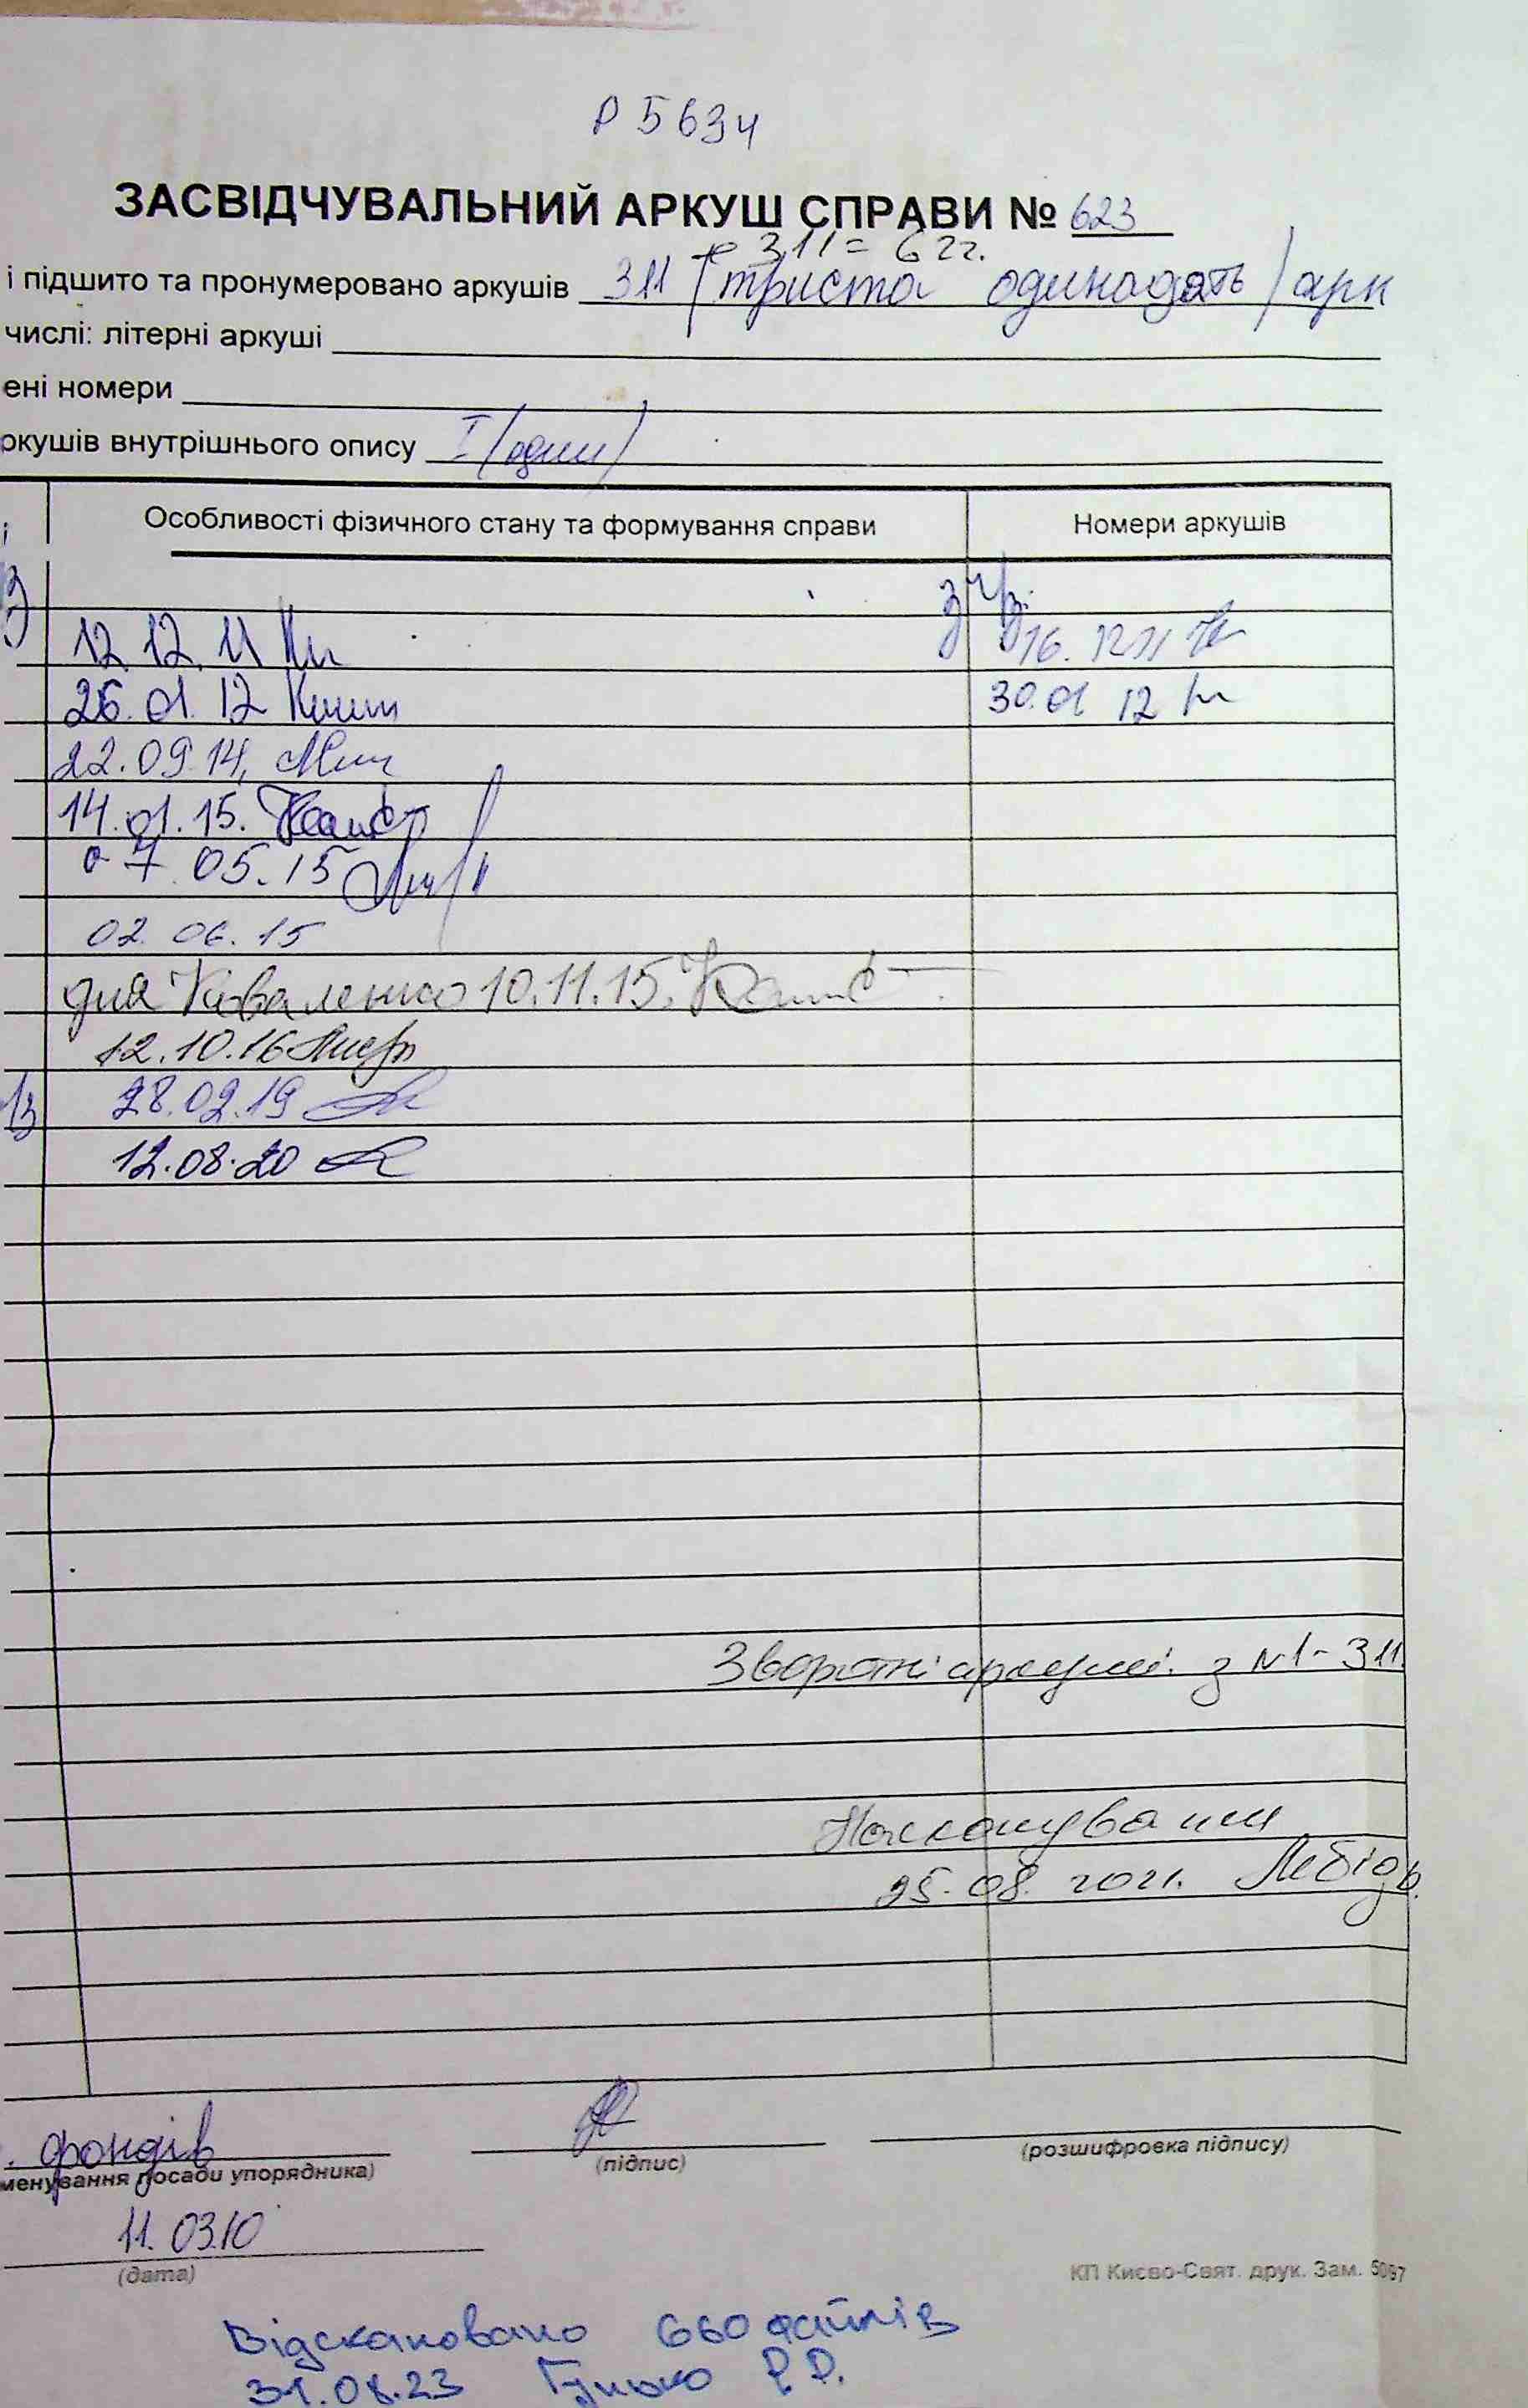 Р 5634
ЗАСВІДЧУВАЛЬНИЙ АРКУШ СПРАВИ № 623
311 = 622.
і підшито та пронумеровано аркушів 311 (триста одинадать) арк
числі: літерні аркуші
ені номери
ркушів внутрішнього опису I (один)
Особливості фізичного стану та формування справи Номери аркушів
12.12.11 16.12 11
26.01.12 30.01 12
22.09.14,
14.01.15.
07.05.15
02.06.15
для Коваленко 10.11.15.
12.10.16
28.02.19
12.08.20
Зворотні аркуші з №1-311
25.08.2021. Лебідь
. фондів
менування посади упорядника) (підпис) (розшифровка підпису)
11.03.10
(дата)
КП Києво-Свят. друк. Зам. 5097
Відскановано 660 файлів
31.08.23 Гунько Р.Р.